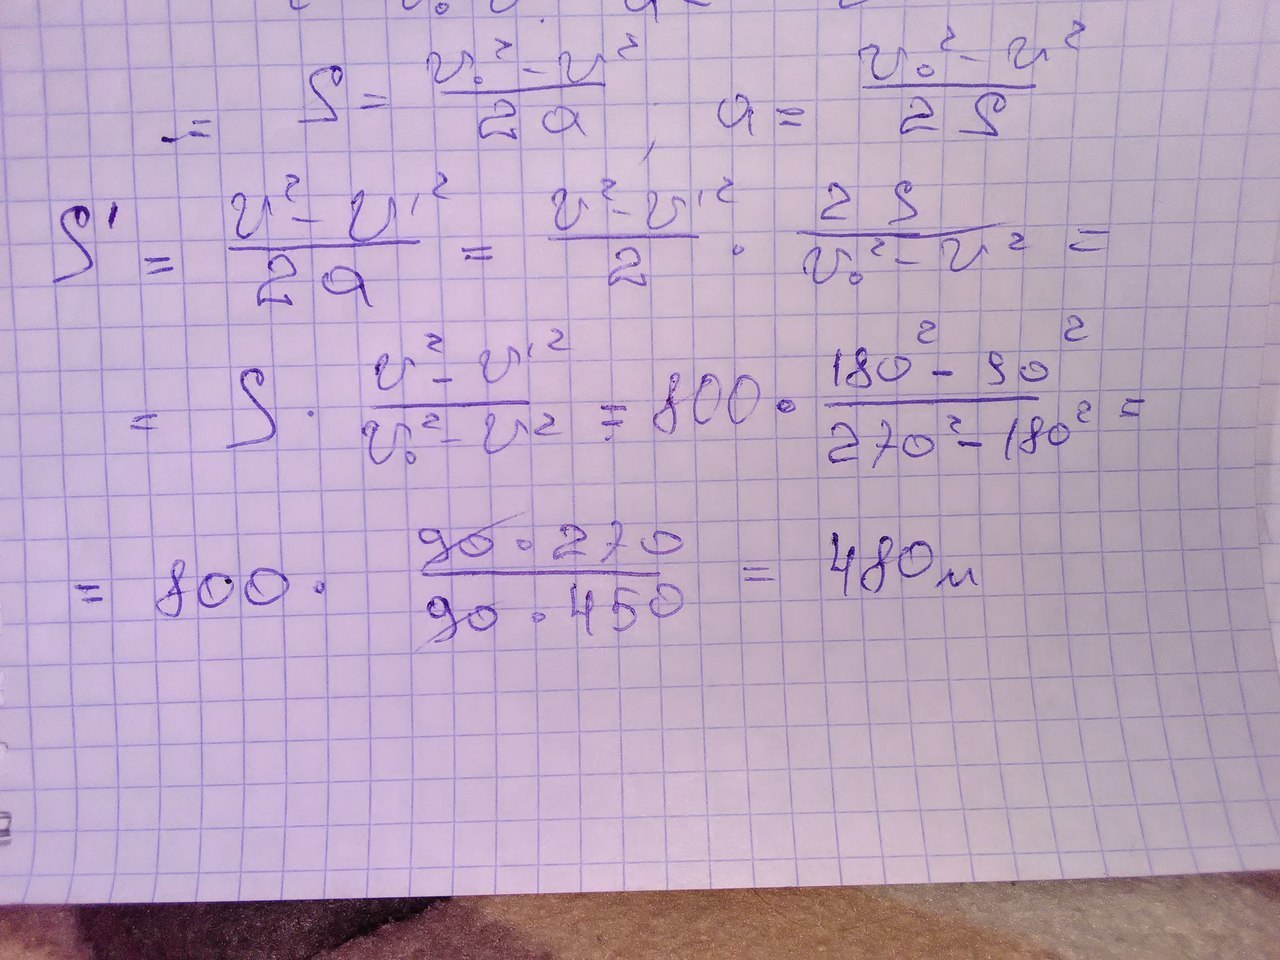 = S = (v₀² - v²)/(2a), a = (v₀² - v²)/(2S)
S' = (v² - v'²)/(2a) = (v² - v'²)/2 · 2S/(v₀² - v²) =
= S · (v² - v'²)/(v₀² - v²) = 800 · (180² - 90²)/(270² - 180²) =
= 800 · (90 · 270)/(90 · 450) = 480м